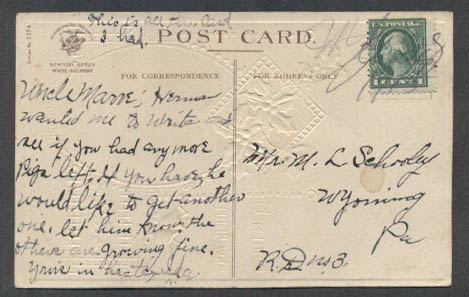 This is all the card
I had.
POST CARD.
U.S. POSTAGE
1 CENT 1
NEW YORK BERLIN
FOR CORRESPONDENCE
FOR ADDRESS ONLY
Uncle Marve, Herman
wanted me to write and
see if you had any more
Pigs left. If you have, he
would like to get another
one. let him know the
others are growing fine.
Yours in haste,
Mr. M. L Schooley
Wyoming
Pa
R.D. no 3.